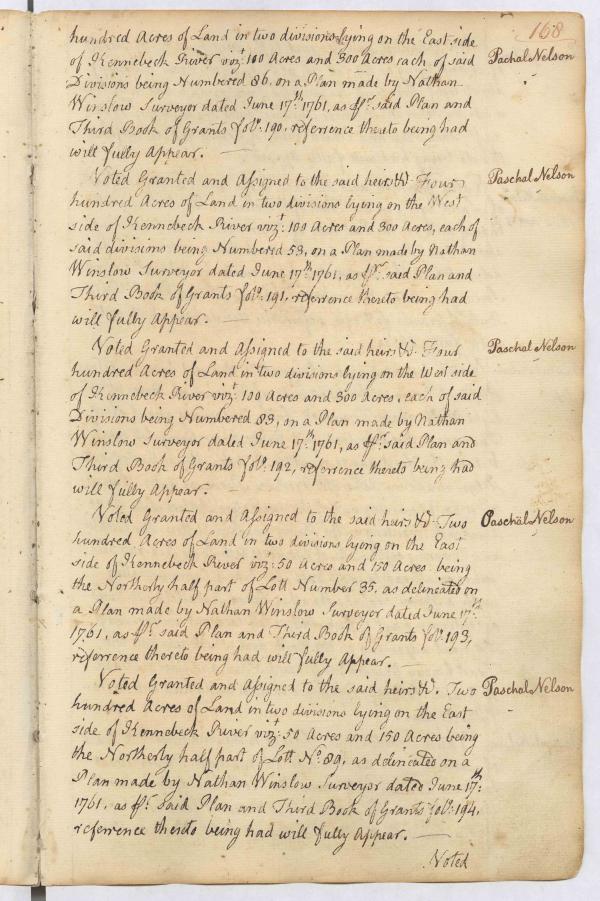 168
hundred Acres of Land in two divisions lying on the East side
of Kennebeck River vizt. 100 Acres and 300 Acres each of said
Pachal Nelson
Divisions being Numbered 86, on a Plan made by Nathan
Winslow Surveyor dated June 17th. 1761, as pr. said Plan and
Third Book of Grants folo. 190, referrence thereto being had
will fully Appear. —
Voted Granted and Assigned to the said heirs &c. Four
Paschal Nelson
hundred Acres of Land in two divisions lying on the West
side of Kennebeck River vizt. 100 Acres and 300 Acres, each of
said divisions being Numbered 53, on a Plan made by Nathan
Winslow Surveyor dated June 17th. 1761, as pr. said Plan and
Third Book of Grants folo. 191, referrence thereto being had
will fully Appear. —
Voted Granted and Assigned to the said heirs &c. Four
Paschal Nelson
hundred Acres of Land in two divisions lying on the West side
of Kennebeck River vizt. 100 Acres and 300 Acres, each of said
Divisions being Numbered 83, on a Plan made by Nathan
Winslow Surveyor dated June 17th. 1761, as pr. said Plan and
Third Book of Grants folo. 192, referrence thereto being had
will fully Appear. —
Voted Granted and Assigned to the said heirs &c. Two
Paschal Nelson
hundred Acres of Land in two divisions lying on the East
side of Kennebeck River vizt: 50 Acres and 150 Acres being
the Northerly half part of Lott Number 35, as delineated on
a Plan made by Nathan Winslow Surveyor dated June 17th:
1761, as pr. said Plan and Third Book of Grants folo. 193,
referrence thereto being had will fully Appear. —
Voted Granted and Assigned to the said heirs &c. Two
Paschal Nelson
hundred Acres of Land in two divisions lying on the East
side of Kennebeck River vizt: 50 Acres and 150 Acres being
the Northerly half part of Lott No. 89, as delineated on a
Plan made by Nathan Winslow Surveyor dated June 17th:
1761, as pr. said Plan and Third Book of Grants folo. 194,
referrence thereto being had will fully Appear. —
Voted